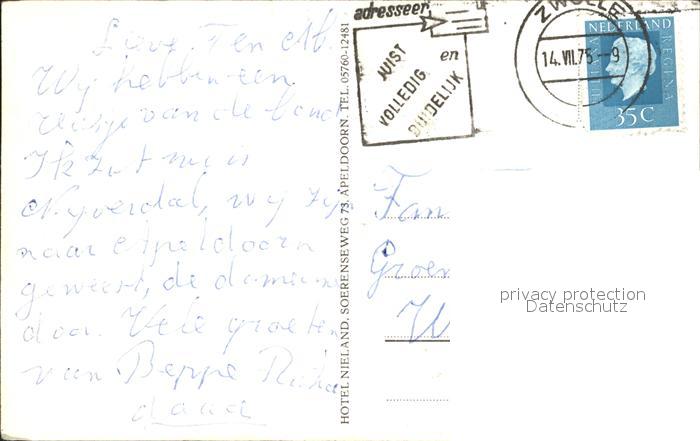 Lieve F en Ab.
Wij hebben een
reisje van de bond
Ik zit nu in
Nyverdal, wy zyn
naar Apeldoorn
geweest, de
door. Vele groeten
van Beppe
HOTEL NIELAND, SOERENSEWEG 73, APELDOORN. TEL. 05760-12481
adresseer
JUIST
VOLLEDIG
en
DUIDELIJK
ZWOLLE
14.VII.75-9
NEDERLAND
JULIANA
REGINA
35C
Fam
Groen
W
privacy protection
Datenschutz